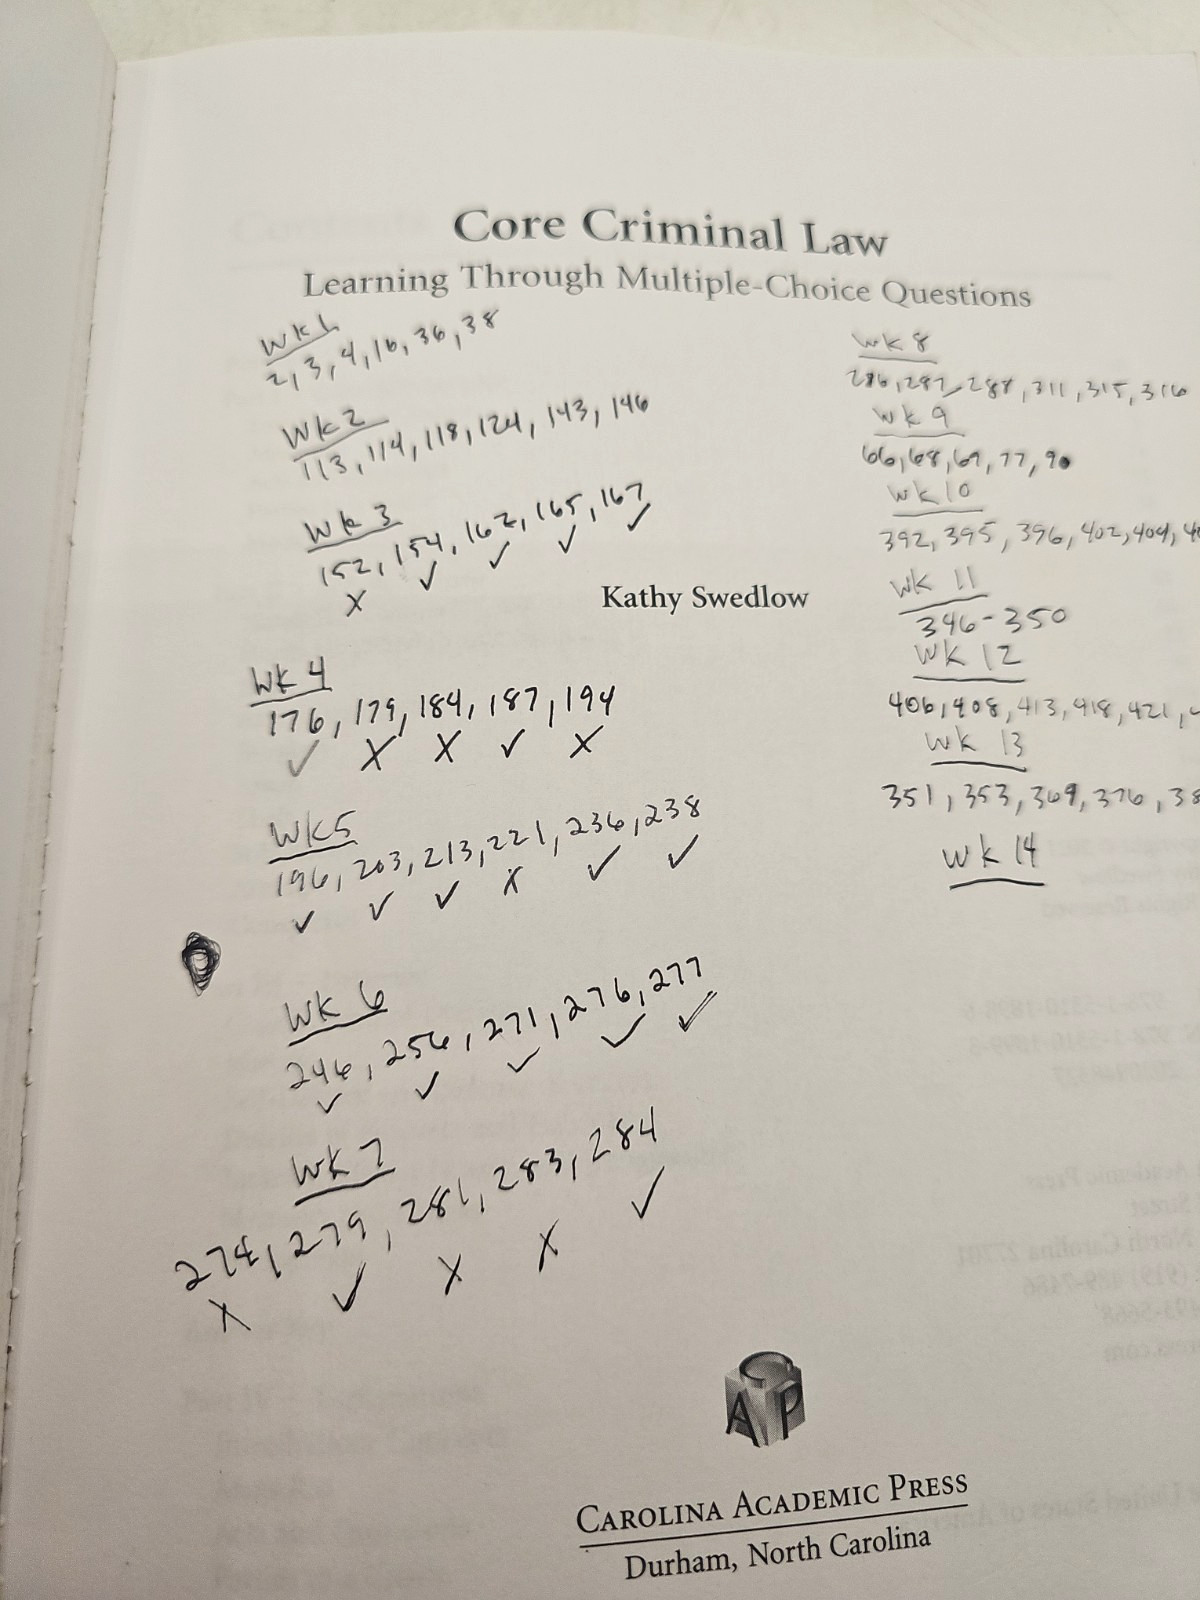 Core Criminal Law
Learning Through Multiple-Choice Questions
Wk 1
2, 3, 4, 16, 36, 38
Wk 2
113, 114, 118, 124, 143, 146
Wk 3
152, 154, 162, 165, 167
X ✓ ✓ ✓ ✓
Kathy Swedlow
Wk 4
176, 179, 184, 187, 194
✓ X X ✓ X
Wk 5
196, 203, 213, 221, 236, 238
✓ ✓ ✓ X ✓ ✓
Wk 6
246, 256, 271, 276, 277
✓ ✓ ✓ ✓ ✓
Wk 7
278, 279, 281, 283, 284
X ✓ X X ✓
Wk 8
286, 287, 288, 311, 315, 316
Wk 9
66, 68, 69, 77, 90
Wk 10
392, 395, 396, 402, 404,
Wk 11
346-350
Wk 12
406, 408, 413, 418, 421,
Wk 13
351, 353, 369, 376, 38
Wk 14
CAP
Carolina Academic Press
Durham, North Carolina